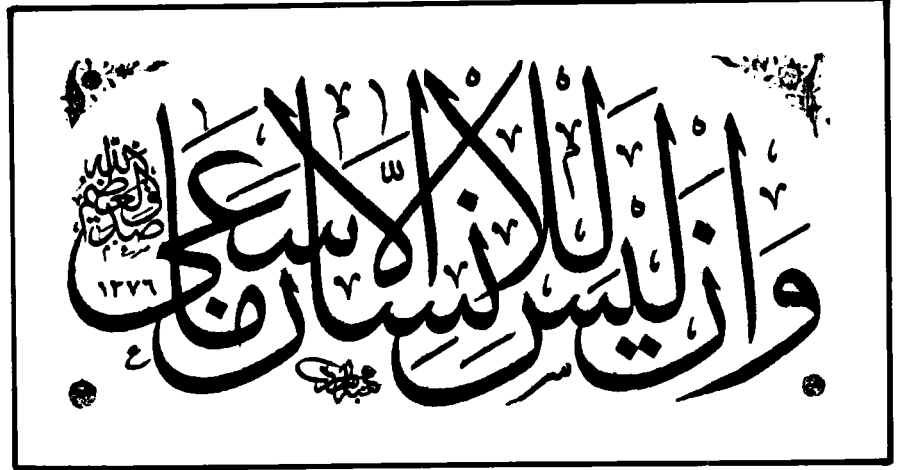 وَاَنْ لَيْسَ لِلْاِنْسَانِ اِلَّا مَا سَعٰى
صدق الله العظيم
١٣٧٦